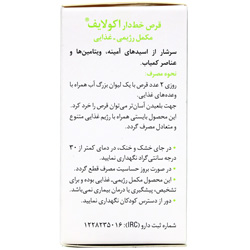 قرص خط‌دار اکولایف®
مکمل رژیمی - غذایی
سرشار از اسیدهای آمینه، ویتامین‌ها و
عناصر کمیاب
نحوه مصرف:
روزی ۲ عدد قرص با یک لیوان بزرگ آب همراه با
وعده‌های غذایی.
جهت بلعیدن آسان‌تر می‌توان قرص را خرد کرد.
این محصول بایستی همراه با رژیم غذایی متنوع
و متعادل مصرف گردد.
- در جای خشک و خنک، در دمای کمتر از ۳۰
درجه سانتی‌گراد نگهداری نمایید.
- در صورت بروز حساسیت مصرف قطع گردد.
- این محصول مکمل رژیمی، غذایی بوده و برای
تشخیص، پیشگیری یا درمان بیماری نمی‌باشد.
- دور از دسترس کودکان نگهداری نمایید.
شماره ثبت دارو (IRC): ۱۲۲۸۲۳۵۰۱۶